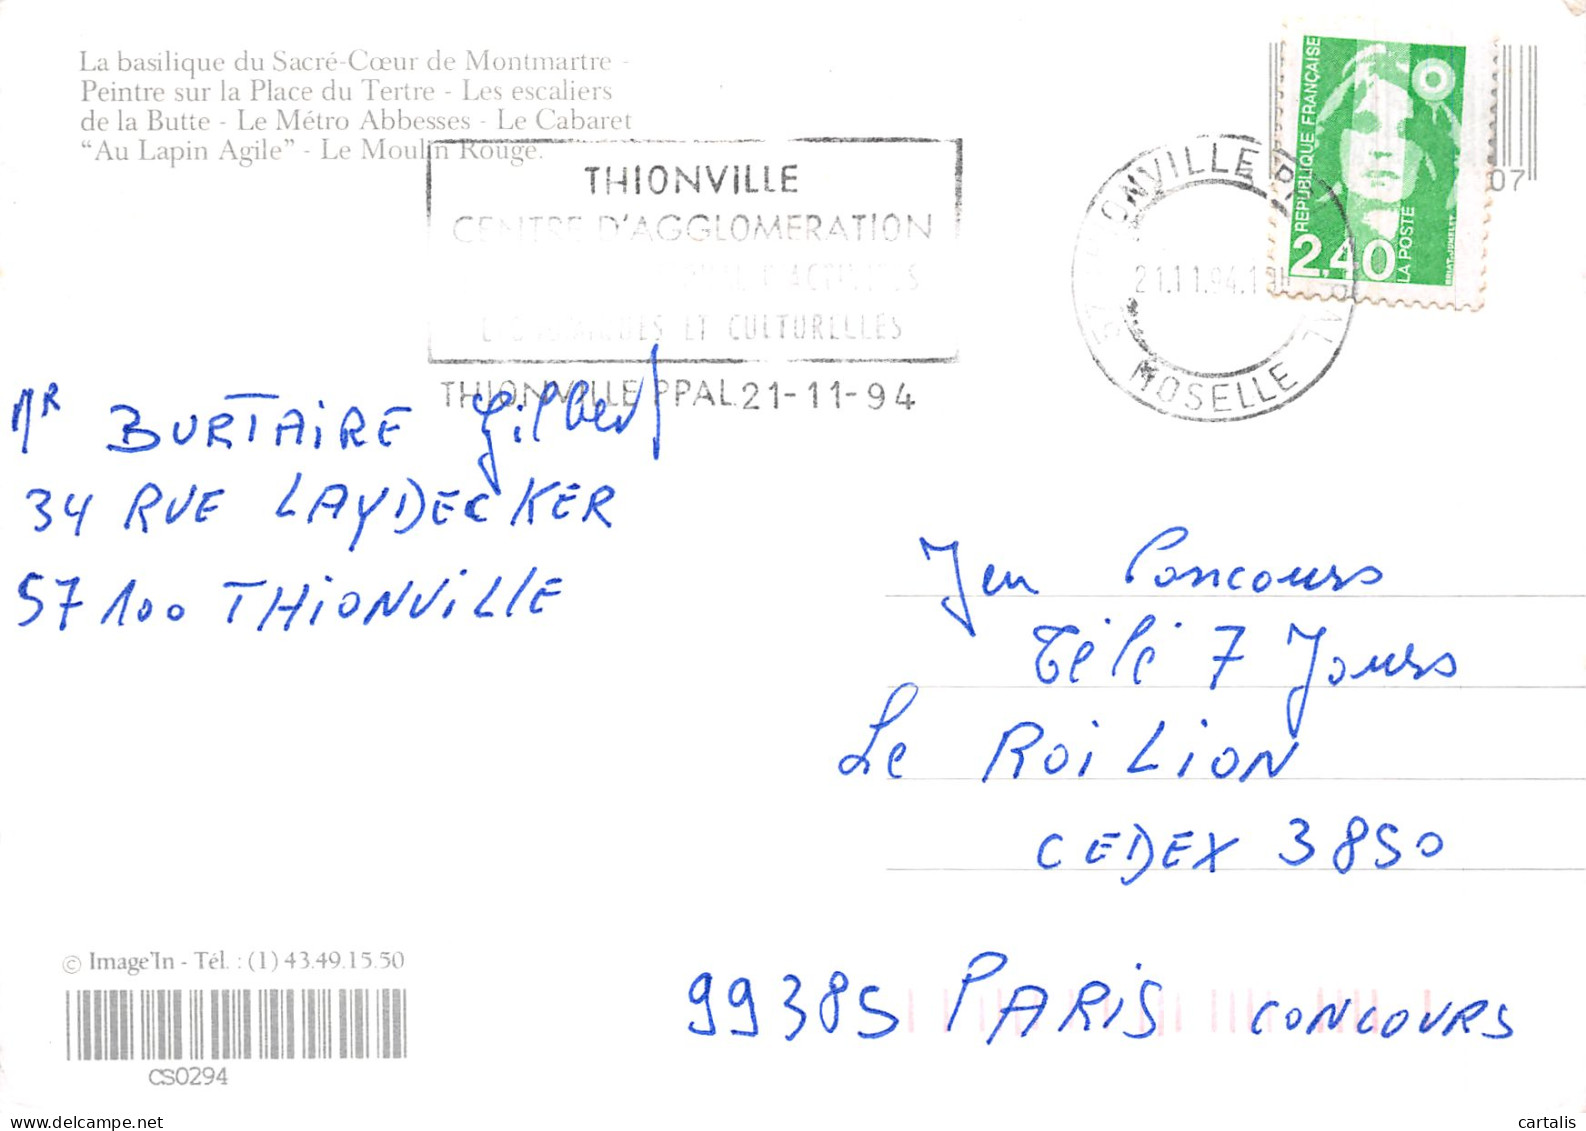 La basilique du Sacré-Cœur de Montmartre -
Peintre sur la Place du Tertre - Les escaliers
de la Butte - Le Métro Abbesses - Le Cabaret
“Au Lapin Agile” - Le Moulin Rouge.
THIONVILLE
CENTRE D'AGGLOMERATION
ET CULTURELLES
THIONVILLE PPAL 21-11-94
MOSELLE
21.11.94
REPUBLIQUE FRANÇAISE
2,40
LA POSTE
BRIAT-JUMELET
07
Mr BURTAIRE Gilbert
34 RUE LAYDECKER
57100 THIONVILLE
Jeu Concours
Télé 7 Jours
Le ROI LION
CEDEX 3850
99385 PARIS CONCOURS
© Image'In - Tél. : (1) 43.49.15.50
CS0294
cartalis